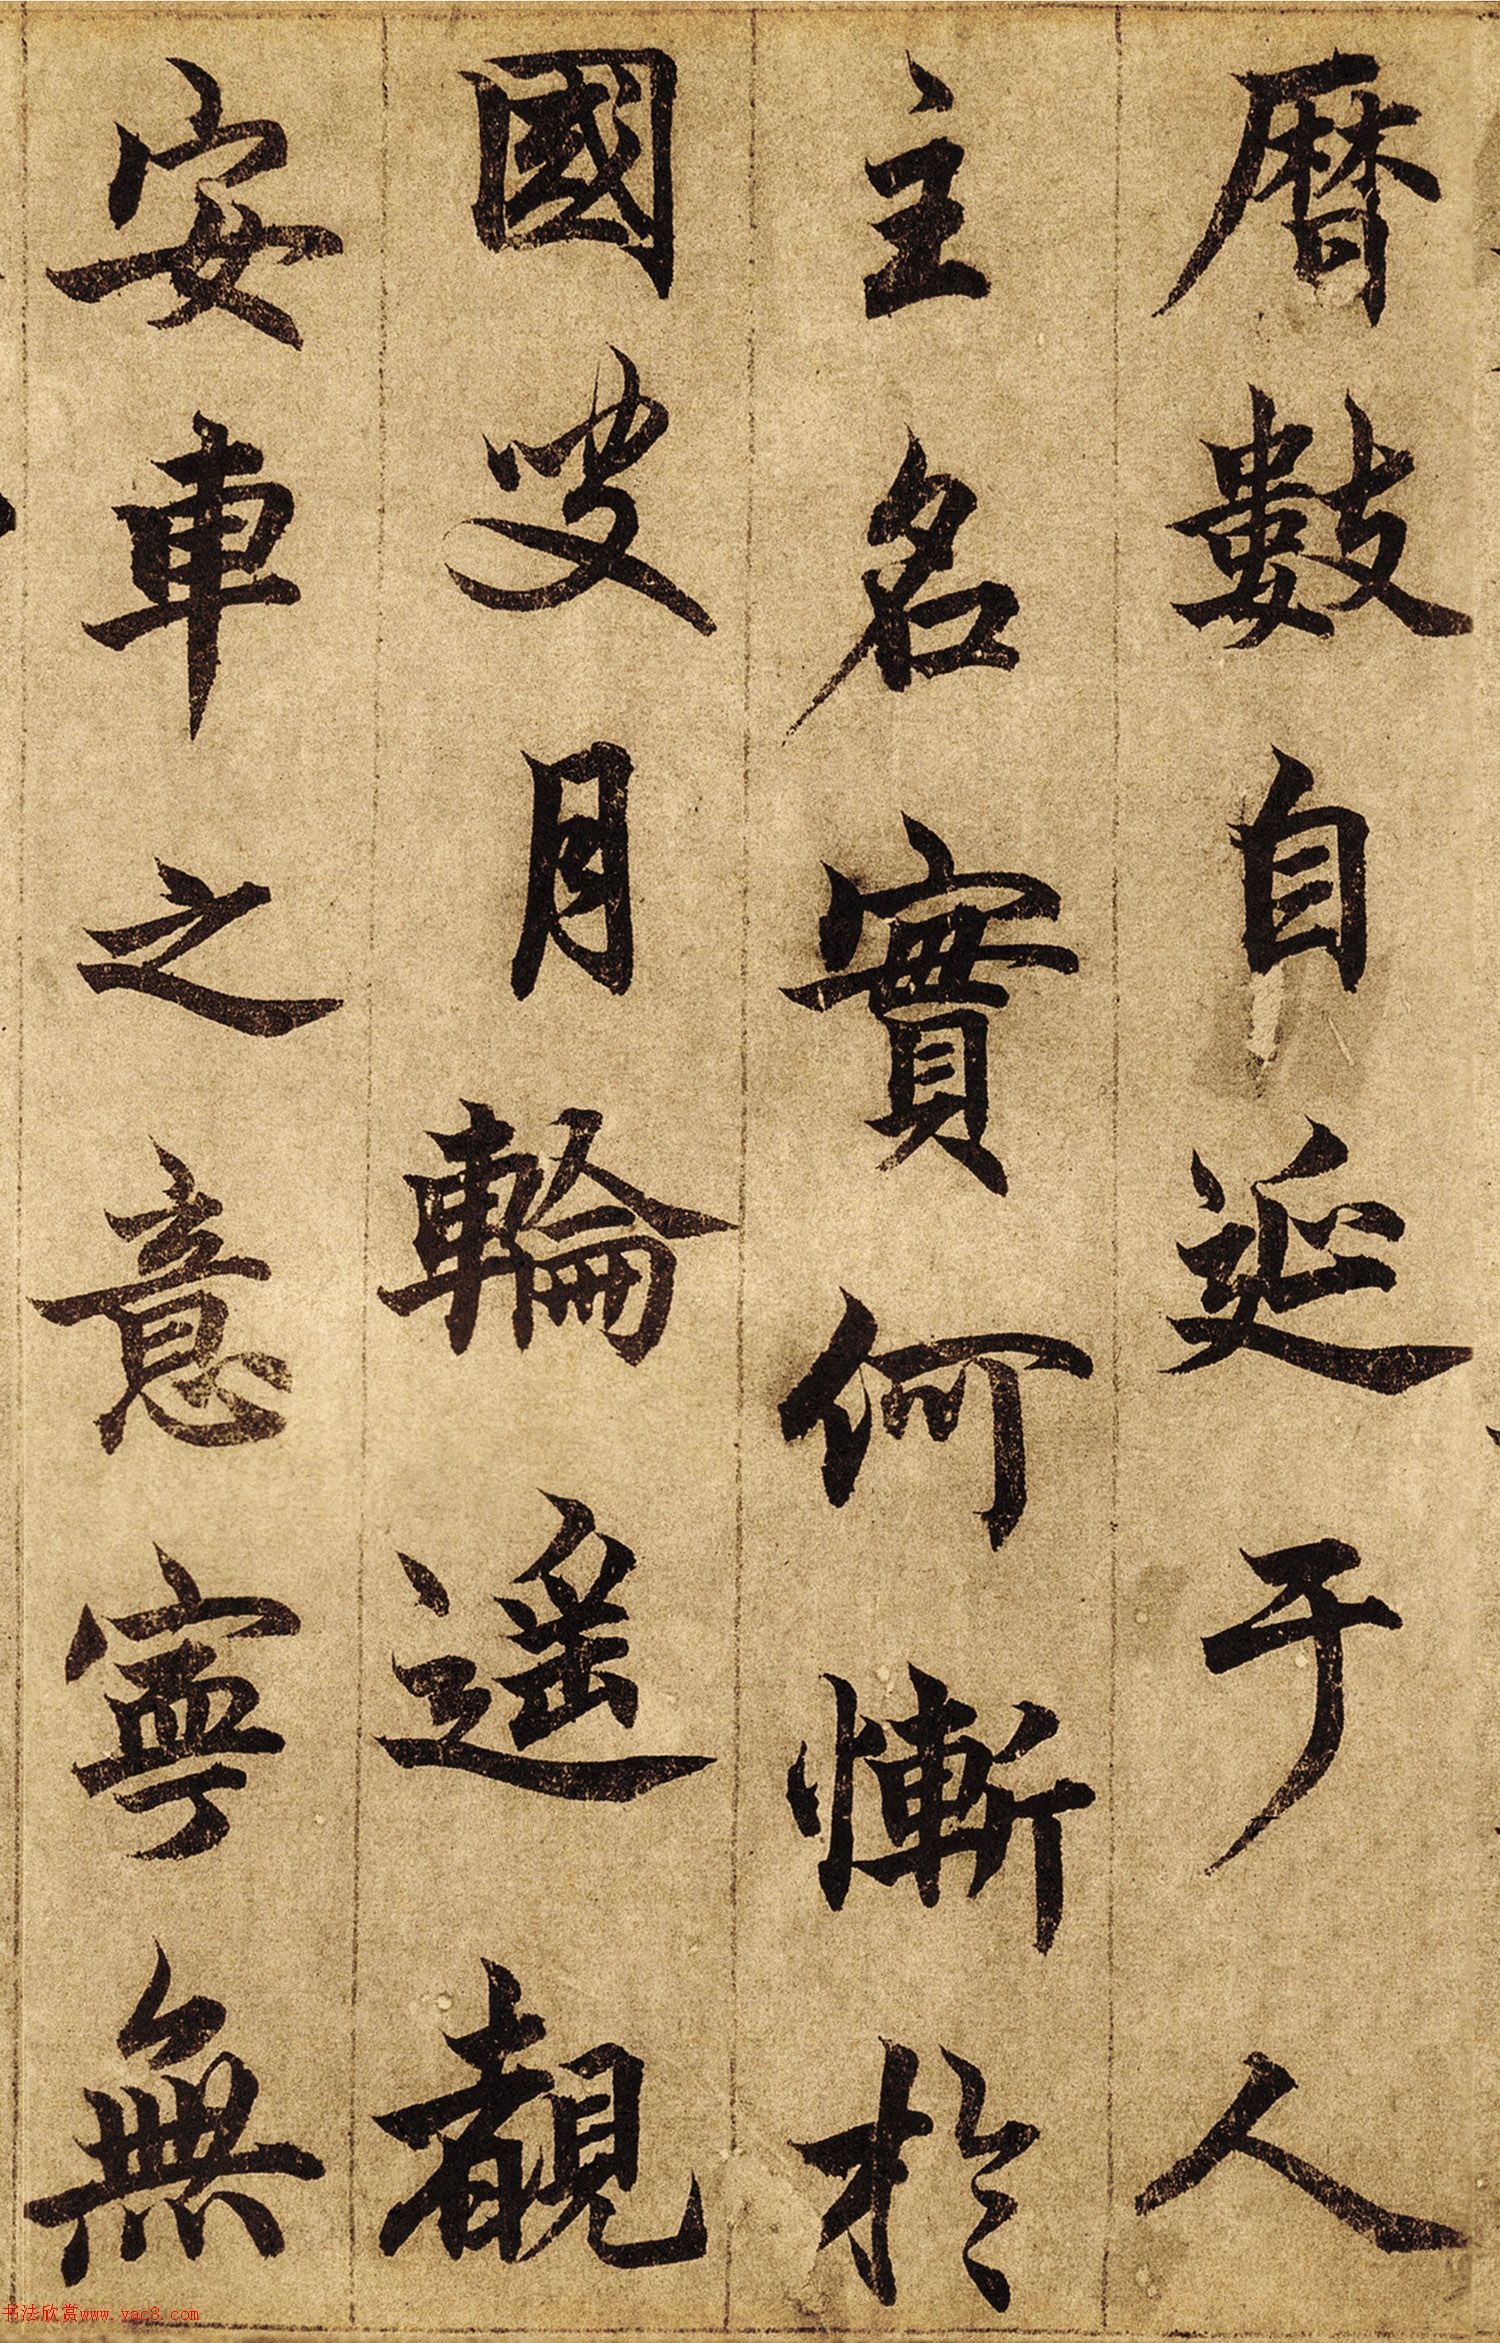 曆數自延于人
主名實何慚於
國叟月輪遥覩
安車之意寧無
书法欣赏www.yac8.com